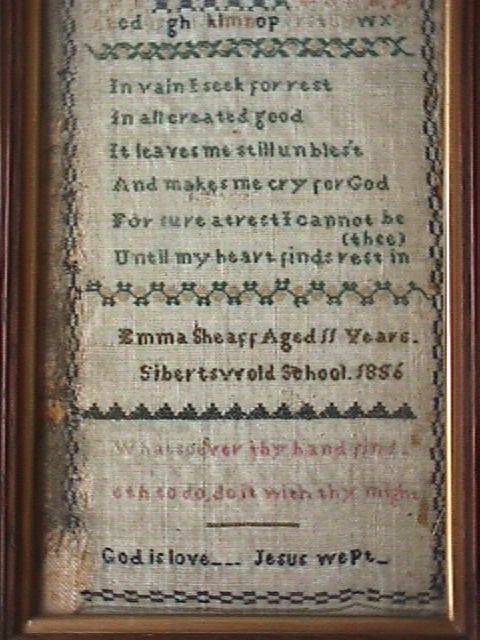 gh klmnop wx
In vain I seek for rest
In all created good
It leaves me still unblest
And makes me cry for God
For sure at rest I cannot be
(thee)
Until my heart finds rest in
Emma Sheaff Aged 11 Years.
Sibertswold School. 1886
Whatsoever thy hand find-
eth to do, do it with thy might
God is love--- Jesus wept-